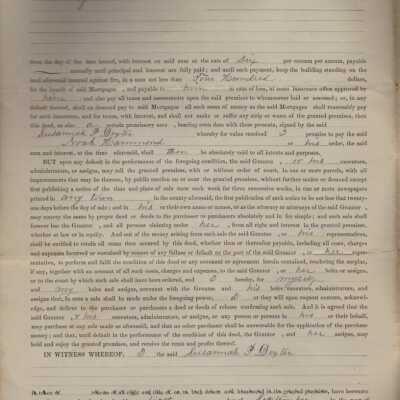 from the day of the date hereof, with interest on said sum at the rate of six per centum per annum, payable
annually until principal and interest are fully paid; and until such payment, keep the building standing on the
land aforesaid insured against fire, in a sum not less than Four Hundred dollars,
for the benefit of said Mortgagee, and payable to him in case of loss, at some insurance office approved by
him and also pay all taxes and assessments upon the said premises to whomsoever laid or assessed; or, in any
default thereof, shall on demand pay to said Mortgagee all such sums of money as the said Mortgagee shall reasonably pay
for such insurance, and for taxes, with interest, and shall not make or suffer any strip or waste of the granted premises, then
this deed, as also a certain promissory note, bearing even date with these presents, signed by the said
Susannah F whereby for value received I promise to pay the said
Noah Hammond or his order, the said
sum and interest, at the time aforesaid, shall then be absolutely void to all intents and purposes.
BUT upon any default in the performance of the foregoing condition, the said Grantee, or his executors,
administrators, or assigns, may sell the granted premises, with or without or in one or more parcels, with all
improvements that may be thereon, by public auction on or near the granted premises, without further notice or demand except
that publishing a notice of the time and place of sale once each week for three successive weeks, in one or more newspapers
printed in any town in the county aforesaid, the first publication of such notice to be not less than twenty-
one days before the day of sale; and in his or their own name or names, or as the attorney or attorneys of the said Grantor,
may convey the same by proper deed or deeds to the purchaser or purchasers absolutely and in fee simple; and such sale shall
forever bar the Grantor, and all persons claiming under her, from all right and interest in the granted premises,
whether at law or in equity. And out of the money arising from such sale the said Grantee, or his representatives,
shall be entitled to retain all sums then secured by this deed, whether then or thereafter payable, including all costs, charges
and expenses incurred or sustained by reason of any failure or default on the part of the said Grantor, or her representatives,
to perform and fulfil the condition of this deed or any covenant or agreement herein contained, rendering the surplus,
if any, together with an account of all such costs, charges and expenses, to the said Grantor, or her heirs or assigns,
or to the court by which such sale shall have been ordered, and I hereby, for myself
and my heirs and assigns, covenant with the Grantee and his heirs executors, administrators, and
assigns that, in case a sale shall be made under the foregoing power, I or they will upon request execute, acknowl-
edge, and deliver to the purchaser or purchasers a deed or deeds of release confirming such sale. And it is agreed that the
said Grantee, & his executors, administrators, or assigns, or any person or persons in his or their behalf,
may purchase at any sale made as aforesaid, and that no other purchaser shall be answerable for the application of the purchase
money; and that, until default in the performance of the condition of this deed, the Grantor, and her assigns, may
hold and enjoy the granted premises, and receive the rents and profits thereof.
IN WITNESS WHEREOF, I the said Susannah F